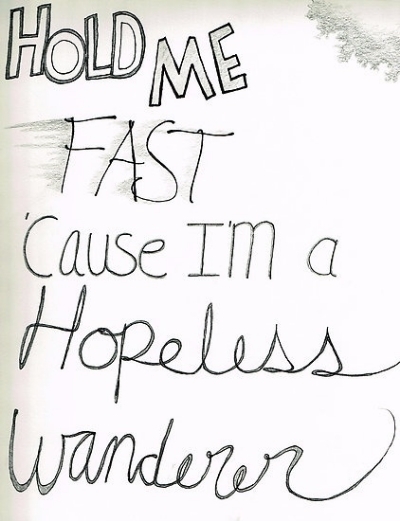 HOLD ME
FAST
'Cause I'm a
Hopeless
wanderer